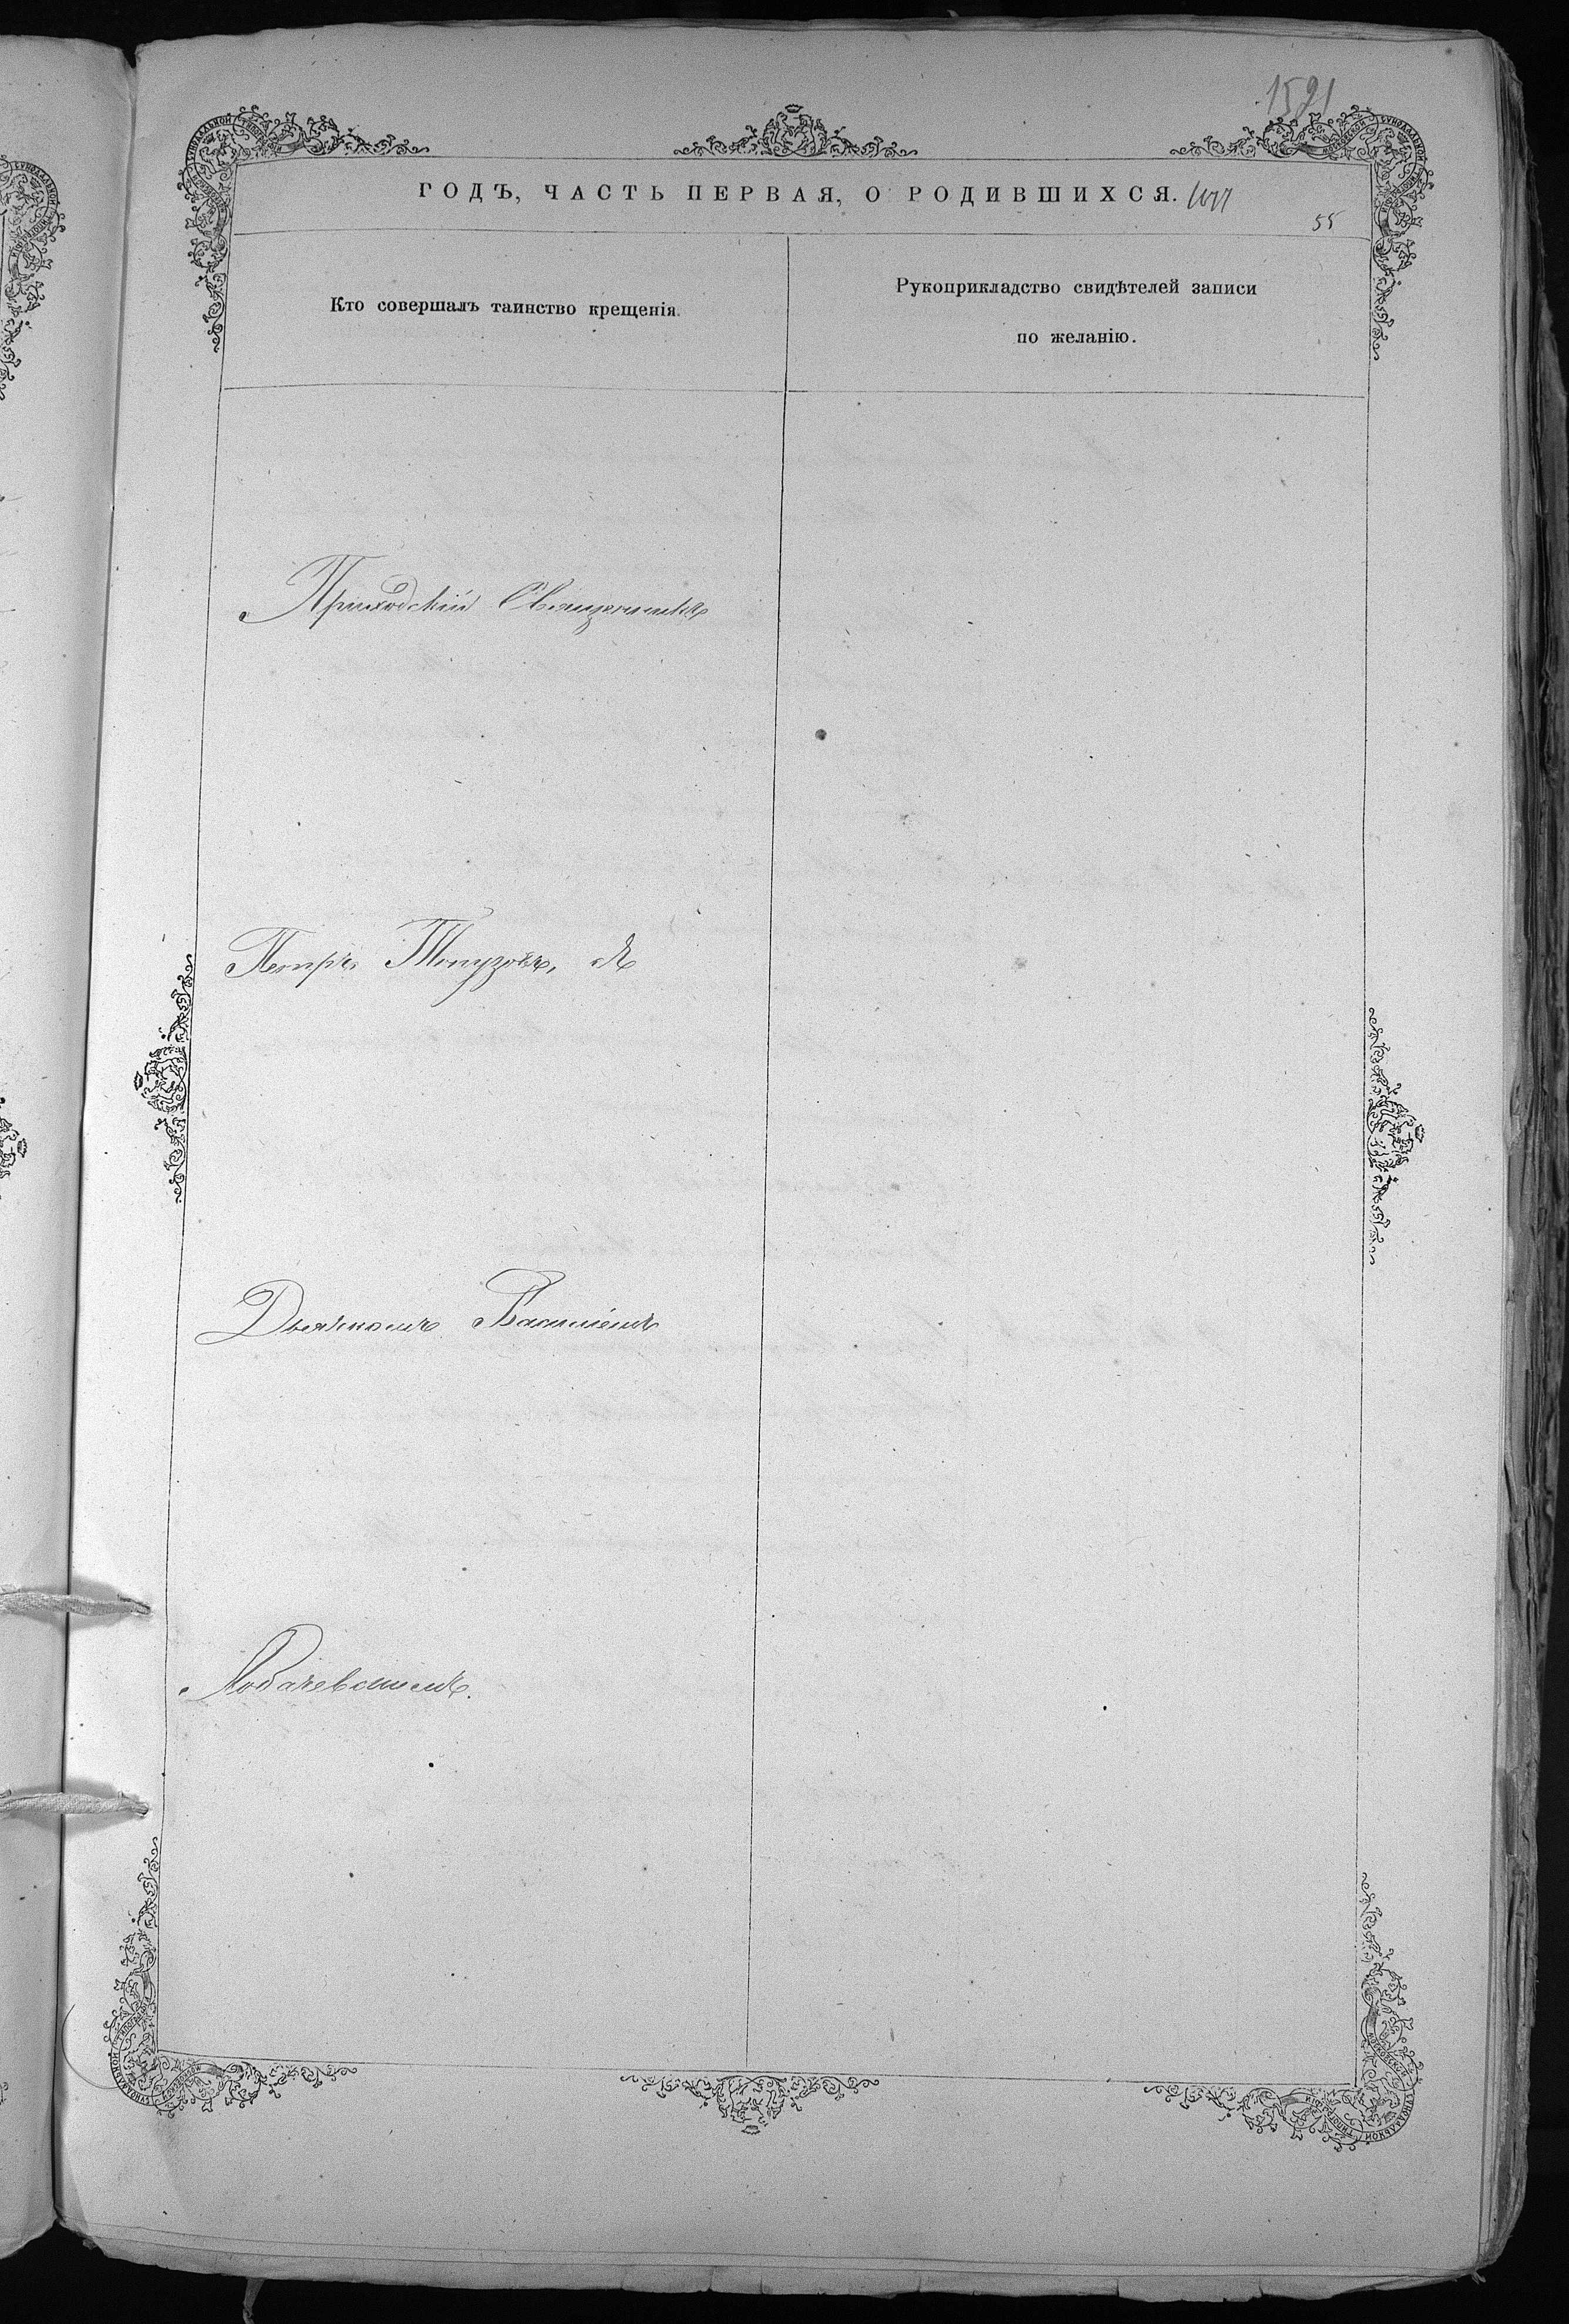 1591
ГОДЪ, ЧАСТЬ ПЕРВАЯ, О РОДИВШИХСЯ.
55
Кто совершалъ таинство крещенія.
Рукоприкладство свидѣтелей записи
по желанію.
Приходскій Священникъ
Петръ Топузовъ, съ
Дьячкомъ Василіемъ
Лобачевскимъ.